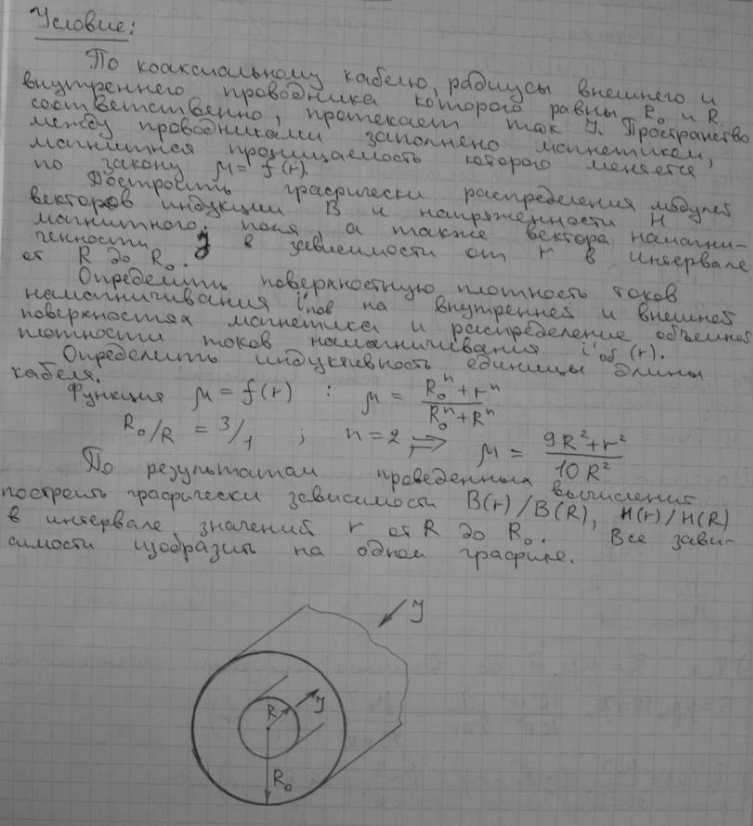 Условие:
По коаксиальному кабелю, радиусы внешнего и
внутреннего проводника которого равны R₀ и R
соответственно, протекает ток I. Пространство
между проводниками заполнено магнетиком,
магнитная проницаемость которого меняется
по закону μ = f(r).
Построить графически распределения модулей
векторов индукции B и напряженности H
магнитного поля, а также вектора намагни-
ченности J в зависимости от r в интервале
от R до R₀.
Определить поверхностную плотность токов
намагничивания i'пов на внутренней и внешней
поверхностях магнетика и распределение объемной
плотности токов намагничивания i'об(r).
Определить индуктивность единицы длины
кабеля.
Функция μ = f(r) : μ = (R₀ⁿ + rⁿ)/(R₀ⁿ + Rⁿ)
R₀/R = 3/1 ; n = 2 ⇒ μ = (9R² + r²)/(10R²)
По результатам проведенных вычислений
построить графически зависимости B(r)/B(R), H(r)/H(R)
в интервале значений r от R до R₀. Все зави-
симости изобразить на одном графике.
I
R I
R₀